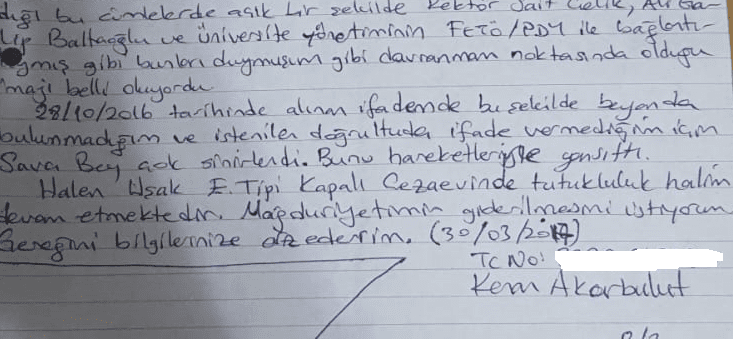 dığı bu cümlelerde açık bir şekilde Rektör Sait Çelik, Ali Ga-
lip Baltaoğlu ve üniversite yönetiminin FETÖ/PDY ile bağlantı-
ymış gibi bunları duymuşum gibi davranmam noktasında olduğu
imajı belli oluyordu
28/10/2016 tarihinde alınan ifademde bu şekilde beyanda
bulunmadığım ve istenilen doğrultuda ifade vermediğim için
Savcı Bey çok sinirlendi. Bunu hareketleriyle yansıttı.
Halen Uşak E.Tipi Kapalı Cezaevinde tutukluluk halim
devam etmektedir. Mağduriyetimin giderilmesini istiyorum
Gereğini bilgilerinize arz ederim. (30/03/2017)
TC No:
Kerim Akarbulut